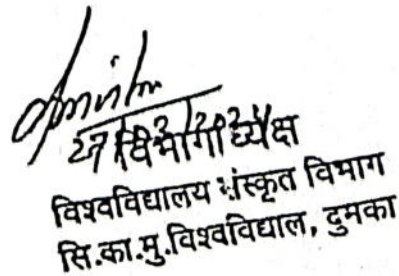 विभागाध्यक्ष
विश्वविद्यालय संस्कृत विभाग
सि.का.मु.विश्वविद्याल, दुमका